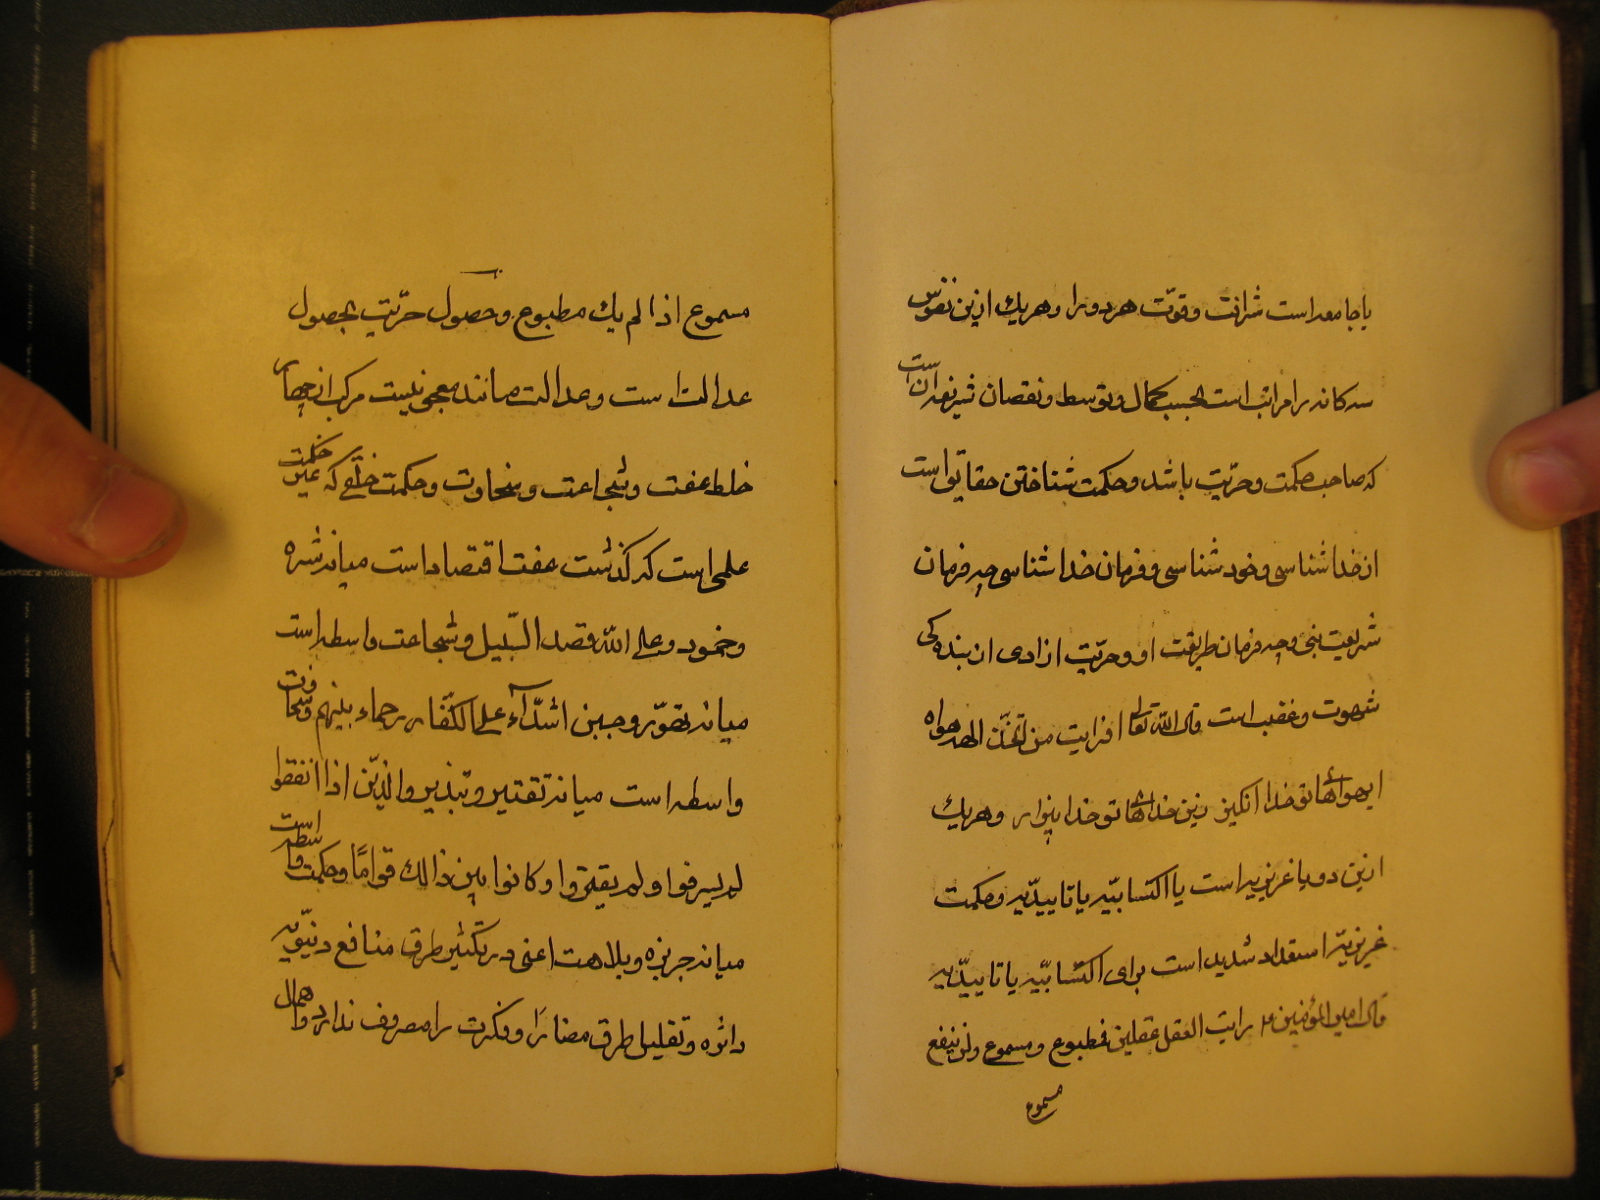 یا جامعه است شرافت و قوّت هر دو را و هر یك ازین نفوس
سه کانه را مراتب است بحسب کمال و توسط و نقصان شریفه آن است
که صاحب حکمت و حرّیت باشد و حکمت شناختن حقایق است
از خدا شناسی و خود شناسی و فرمان خدا شناسی چه فرمان
شریعت نبی و چه فرمان طریقت او و حرّیت ازادی از بنده کی
شهوت و غضب است قال الله تعالی افرایت من اتّخذ الهه هواه
ای هواهای تو خدا انکیز زین خداهای تو خدا بیزار و هر یك
ازین دو یا غریزیه است یا اکتسابیّه یا تاییدّیه و حکمت
غریزیّه استعداد شدید است برای اکتسابیّه یا تاییدّیه
قال امیر المؤمنین ع رایت العقل عقلین فمطبوع و مسموع ولن ینفع
مسموع
مسموع اذا لم یك مطبوع و حصول حرّیت بحصول
عدالت است و عدالت مانند معجونیست مرکب از چهار
خلط عفت و شجاعت و سخاوت و حکمت خلقی که غیر حکمت
علمی است که کذشت عفت اقتصاد است میانه شره
و خمود و علی الله قصد السّبیل و شجاعت واسطه است
میانه تهوّر و جبن اشدّآء علی الکفّار رحماء بینهم و سخاوت
واسطه است میانه تقتیر و تبذیر والذّین اذا انفقوا
لم یسرفوا و لم یقتروا و کانوا بین ذالك قوامًا و حکمت واسطه است
میانه جربزه و بلاهت اعنی در تکثیر طرق منافع دنیّویه
دائره و تقلیل طرق مضارّ و فکرت را مصروف ندارد و اهمال